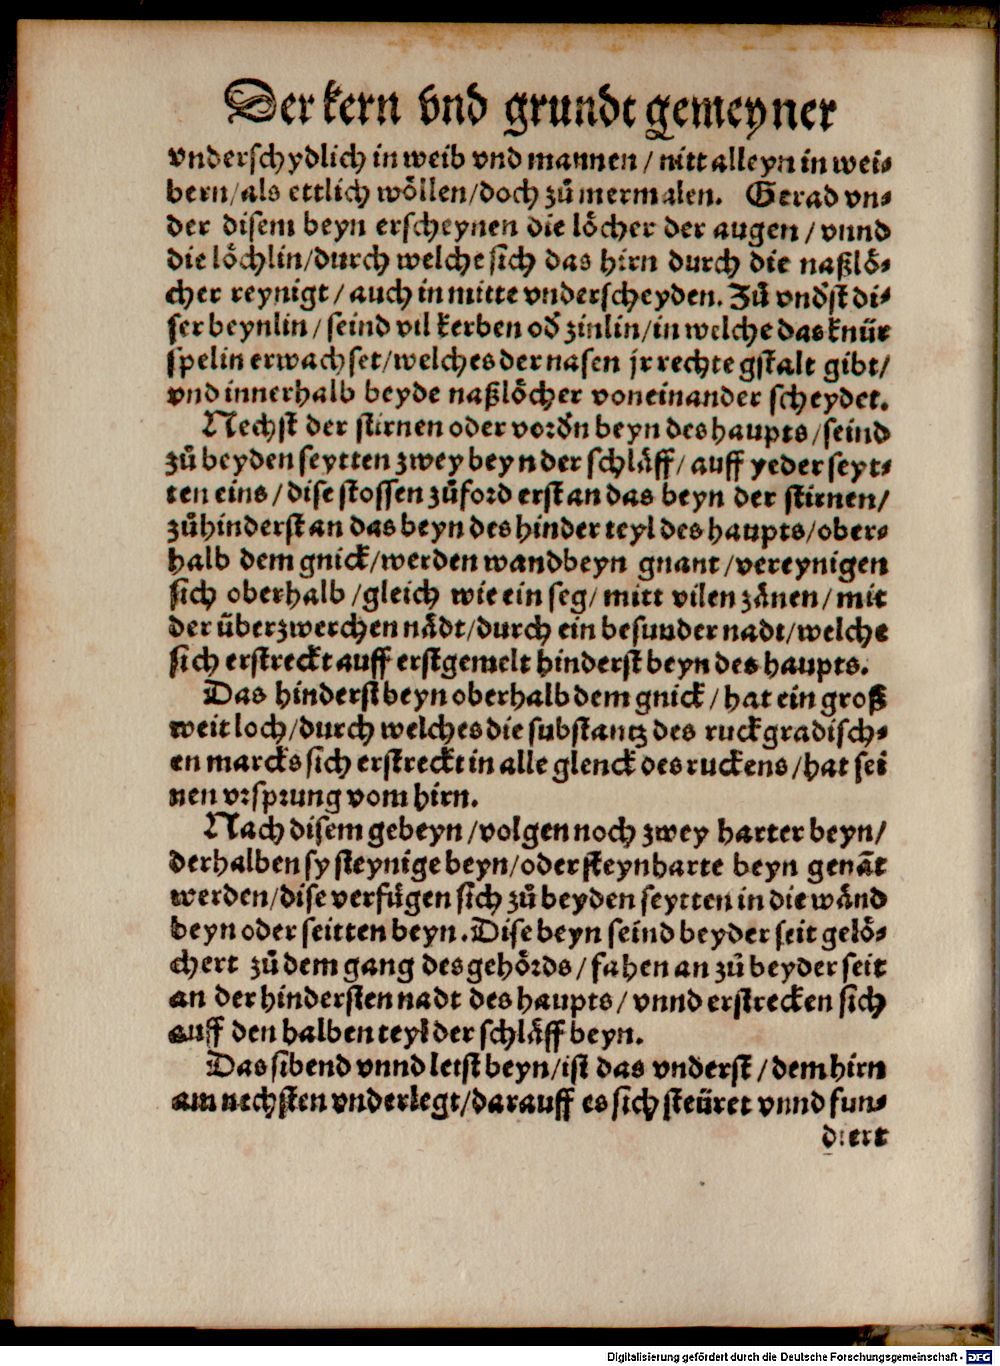 Der kern vnd grundt gemeyner
vnderschydlich in weib vnd mannen / nitt alleyn in wei⸗
bern / als ettlich woͤllen / doch zuͦ mermalen. Gerad vn⸗
der disem beyn erscheynen die loͤcher der augen / vnnd
die loͤchlin / durch welche sich das hirn durch die naßloͤ⸗
cher reynigt / auch in mitte vnderscheyden. Zuͦ vnd'st di⸗
ser beynlin / seind vil kerben od' zinlin / in welche das knür
spelin erwachset / welches der nasen jr rechte gstalt gibt /
vnd innerhalb beyde naßloͤcher voneinander scheydet.
Nechst der stirnen oder vord'n beyn des haupts / seind
zuͦ beyden seytten zwey beyn der schlaͤff / auff yeder seyt⸗
ten eins / dise stossen zuͦford erst an das beyn der stirnen /
zuͦhinderst an das beyn des hinder teyl des haupts / ober⸗
halb dem gnick / werden wandbeyn gnant / vereynigen
sich oberhalb / gleich wie ein seg / mitt vilen zaͤnen / mit
der überzwerchen naͤdt / durch ein besunder nadt / welche
sich erstreckt auff erstgemelt hinderst beyn des haupts.
Das hinderst beyn oberhalb dem gnick / hat ein groß
weit loch / durch welches die substantz des ruckgradisch⸗
en marcks sich erstreckt in alle glenck des ruckens / hat sei
nen vrsprung vom hirn.
Nach disem gebeyn / volgen noch zwey harter beyn /
derhalben sy steynige beyn / oder steynharte beyn genāt
werden / dise verfuͤgen sich zuͦ beyden seytten in die waͤnd
beyn oder seitten beyn. Dise beyn seind beyder seit geloͤ⸗
chert zuͦ dem gang des gehoͤrds / fahen an zuͦ beyder seit
an der hindersten nadt des haupts / vnnd erstrecken sich
auff den halben teyl der schlaͤff beyn.
Das sibend vnnd letst beyn / ist das vnderst / dem hirn
am nechsten vnderlegt / darauff es sich steüret vnnd fun⸗
diert
Digitalisierung gefördert durch die Deutsche Forschungsgemeinschaft - DFG